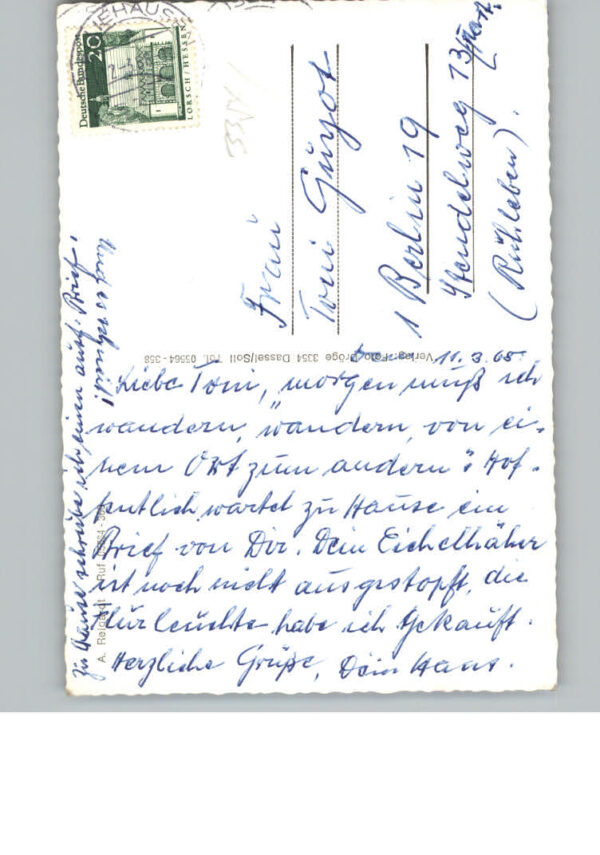 Deutsche Bundespost
20
LORSCH/HESSEN
Frau
Toni Guyot
1 Berlin 19
Stendelweg 13
(Ruhleben).
Verlag: Foto Dröge 3354 Dassel/Soll Tel. 05564-358
Liebe Toni, morgen muß ich
wandern, "wandern von ei-
nem Ort zum andern". Hof-
fentlich wartet zu Hause ein
Brief von Dir. Dein Eichelhäher
ist noch nicht ausgestopft, die
Flurleuchte habe ich gekauft.
Herzliche Grüße, Dein Hans.
Zu Hause schreibe ich einen ausf. Brief.
Und es schneit!